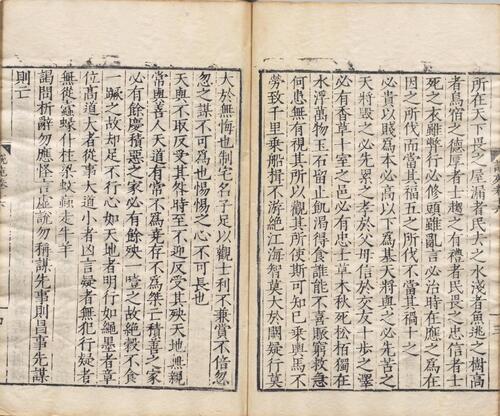 所在天下畏之屋漏者民去之水淺者魚逃之樹高
者鳥宿之德厚者士趨之有禮者民畏之忠信者士
死之衣雖弊行必修頭雖亂言必治時在應之為在
因之所伐而當其福五之所伐不當其禍十之
必貴以賤為本必高以下為基天將與之必先苦之
天將毀之必先累之孝於父母信於交友十步之澤
必有香草十室之邑必有忠士草木秋死松栢獨在
水浮萬物玉石留止飢渴得食誰能不喜賑窮救急
何患無有視其所以觀其所使斯可知已乗輿馬不
勞致千里乗船檝不游絶江海智莫大於闕疑行莫
大於無悔也制宅名子足以觀士利不兼賞不倍忽
忽之謀不可為也惕惕之心不可長也
天與不取反受其咎時至不迎反受其殃天地無親
常與善人天道有常不為堯存不為桀亡積善之家
必有餘慶積惡之家必有餘殃一噎之故絶穀不食
一蹶之故却足不行心如天地者明行如繩墨者章
位高道大者從事大道小者凶言疑者無犯行疑者
無從蠹蝝仆柱梁蚊䖟走牛羊
謁問析辭勿應怪言虛說勿稱謀先事則昌事先謀
則亡